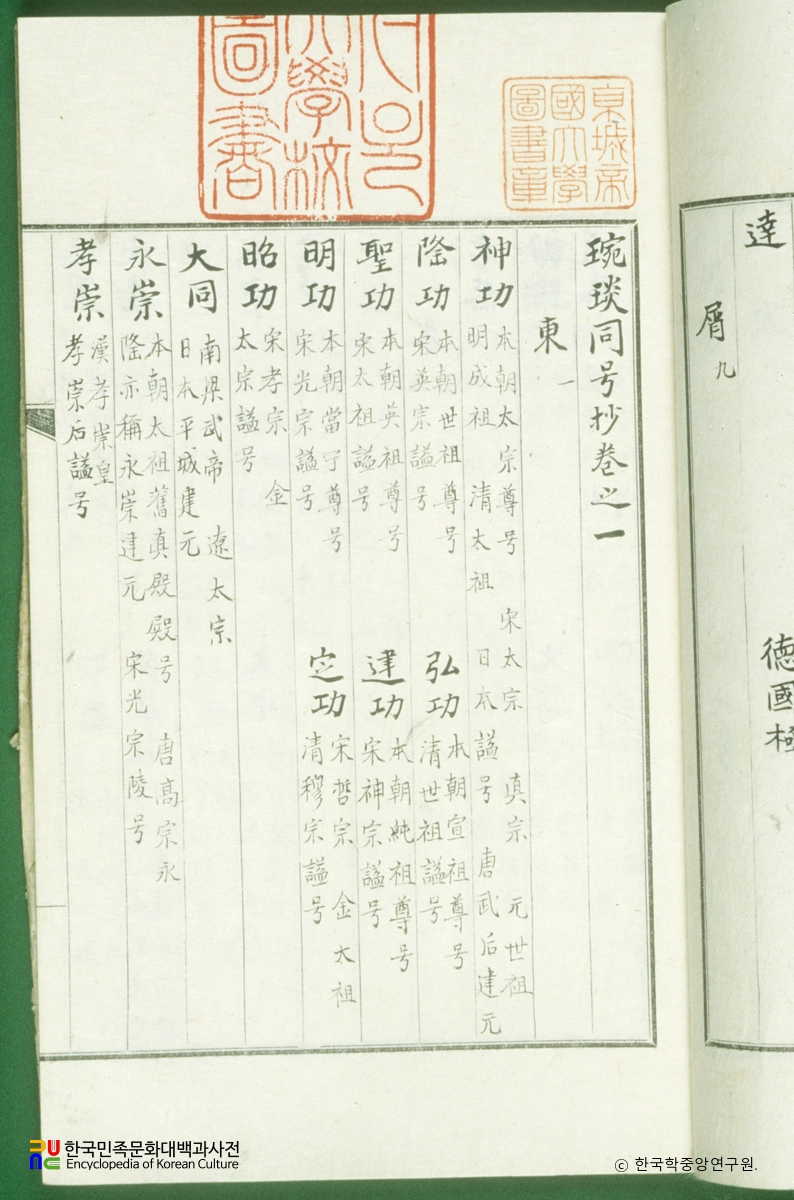 達
屑九
德國極
琬琰同号抄巻之一
東一
神功 本朝太宗尊号 宋太宗 真宗 元世祖
明成祖 清太祖 日本謚号 唐武后建元
隆功 本朝世祖尊号
宋英宗謚号
弘功 本朝宣祖尊号
清世祖謚号
聖功 本朝英祖尊号
宋太祖謚号
建功 本朝純祖尊号
宋神宗謚号
明功 本朝當宁尊号
宋光宗謚号
定功 宋哲宗 金太祖
清穆宗謚号
昭功 宋孝宗 金
太宗謚号
大同 南梁武帝 遼太宗
日本平城建元
永崇 本朝太祖舊真殿殿号 唐高宗永
隆亦稱永崇建元 宋光宗陵号
孝崇 漢孝崇皇
孝崇后謚号
京城帝
國大學
圖書章
大學校
圖書
한국민족문화대백과사전
Encyclopedia of Korean Culture
© 한국학중앙연구원.